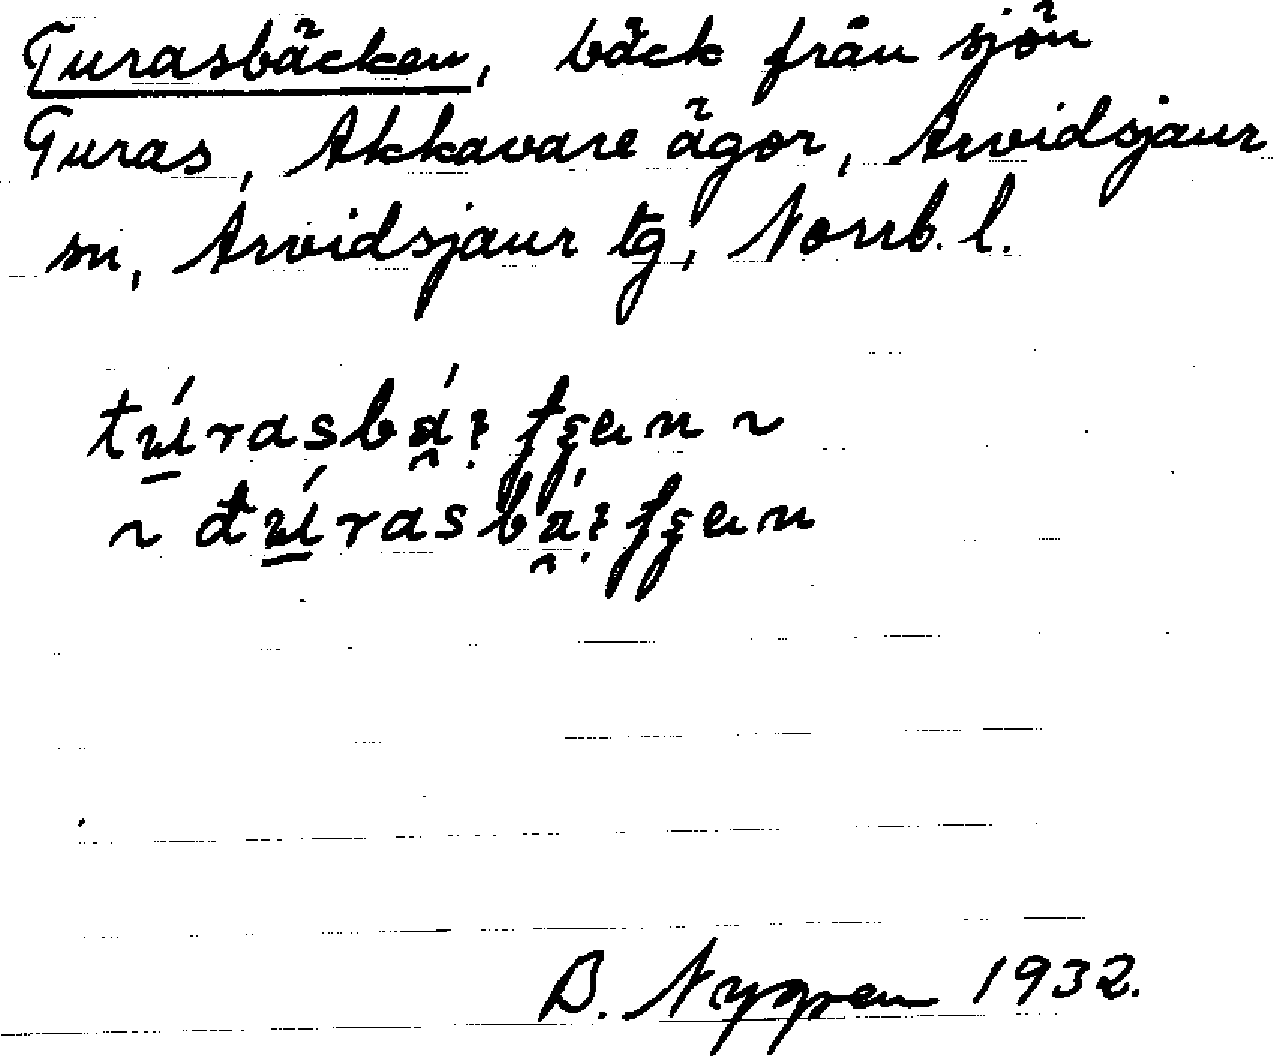 Turasbäcken, bäck från sjön
Turas, Akkavare ägor, Arvidsjaur
sn, Arvidsjaur tg, Norrb. l.
B. Nygren 1932.